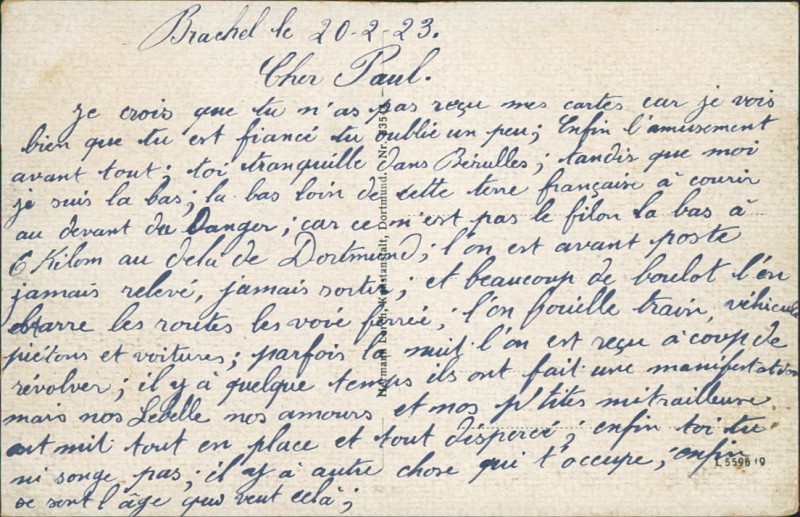 Brachel le 20-2-23.
Cher Paul.
je crois que tu n'as pas reçu mes cartes car je vois
bien que tu est fiancé tu oublie un peu; Enfin l'amusement
avant tout; toi tranquille dans Bérulles; tandis que moi
je suis la bas; la bas loin de cette terre française à courir
au devant du Danger; car ce n'est pas le filon la bas à
6 Kilom au dela de Dortmund; l'on est avant poste
jamais relevé, jamais sortir; et beaucoup de boulot l'on
barre les routes les voie ferrée; l'on fouille train, véhicule
piétons et voitures; parfois la nuit l'on est reçu à coup de
révolver; il y à quelque temps ils ont fait une manifestation
mais nos Lebelle nos amours et nos p'tites mitrailleuse
ont mit tout en place et tout dispercé; enfin toi tu
ni songe pas; il y à autre chose qui t'occupe; enfin
se sont l'âge qui veut celà;
Hermann Lorch, Kunstanstalt, Dortmund. Nr.
L 5596 19